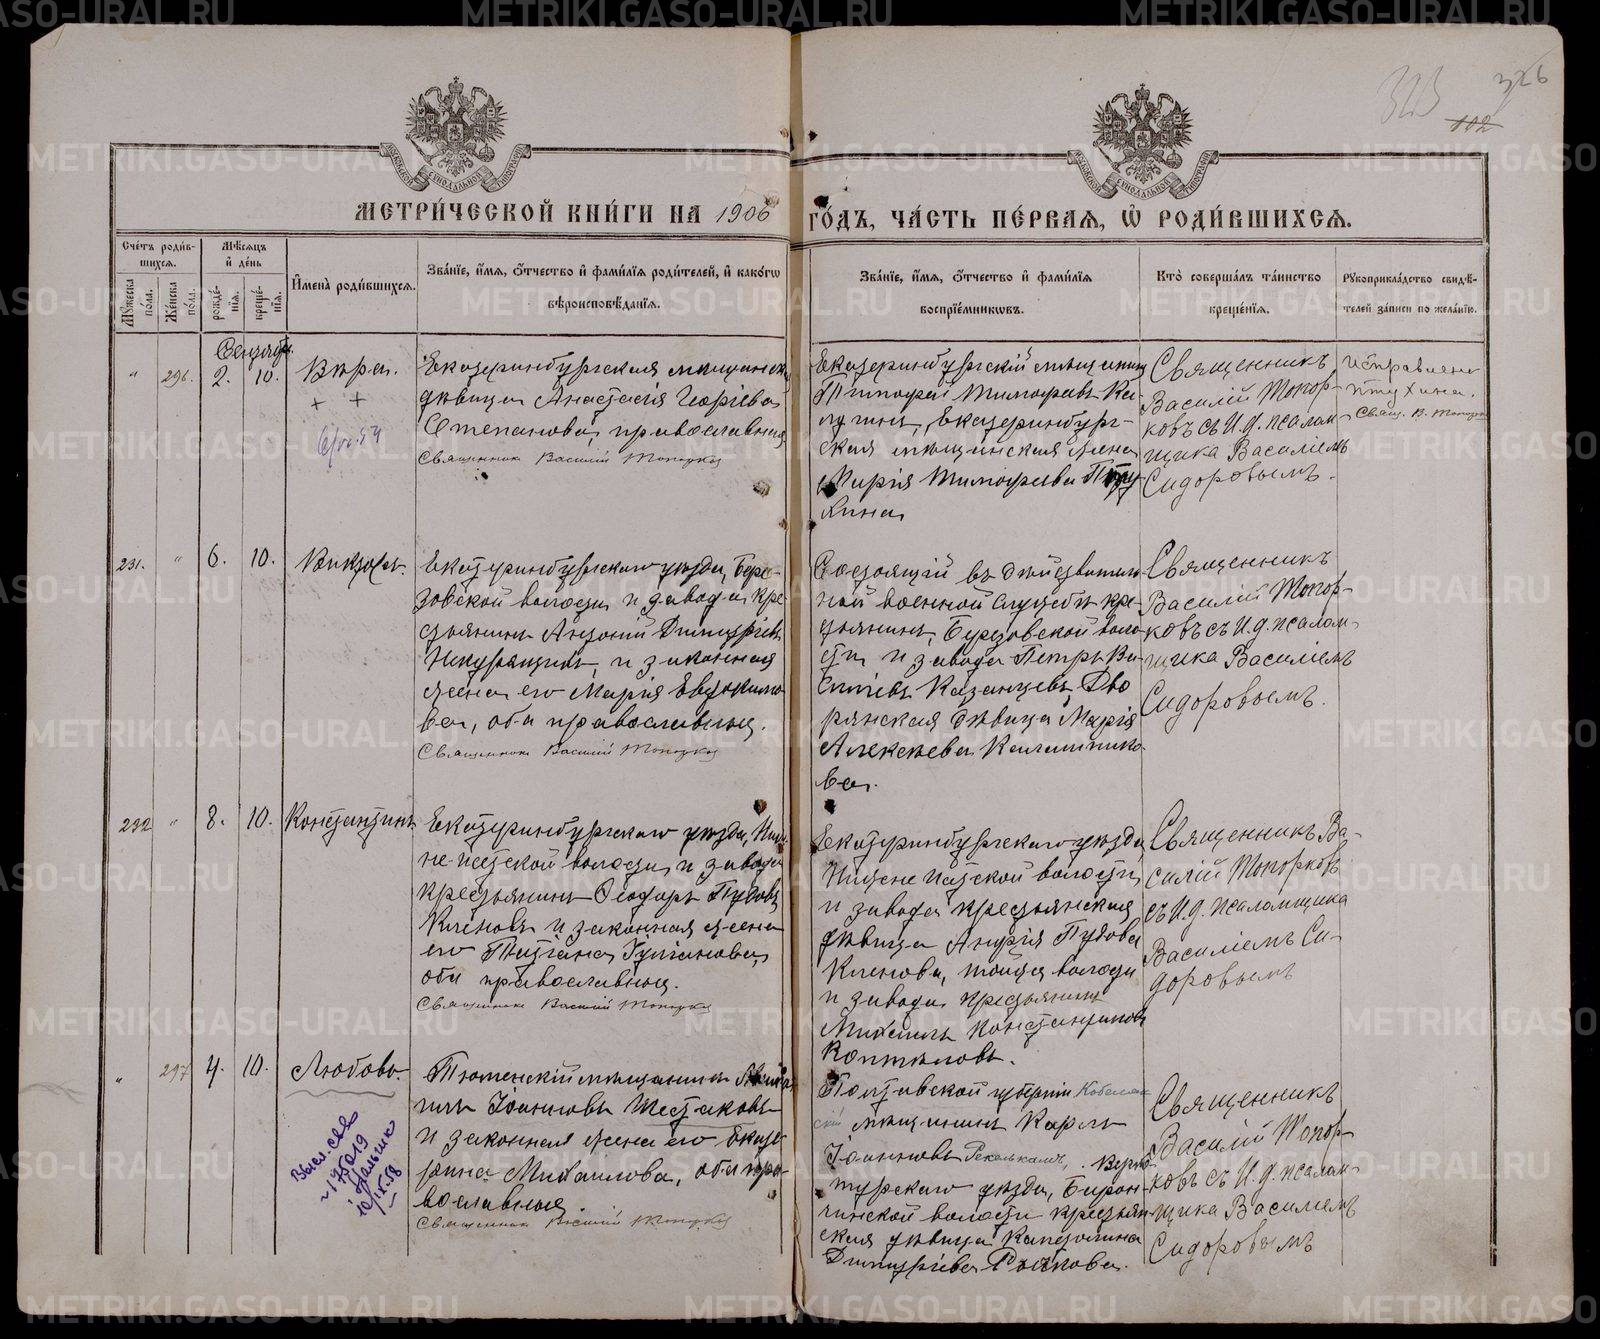 METRIKI.GASO-URAL.RU
326
323
102
МОСКОВСКОЙ СѴНОДАЛЬНОЙ ТИПОГРАФІИ
МОСКОВСКОЙ СѴНОДАЛЬНОЙ ТИПОГРАФІИ
МЕТРИ́ЧЕСКОЙ КНИ́ГИ НА 1906 ГО́ДЪ, ЧА́СТЬ ПЕ́РВАЯ, Ѡ҆ РОДИ́ВШИХСЯ.
Сче́тъ роди́в-
шихся.
Мꙋ́жеска по́ла.
Же́нска по́ла.
Мѣ́сяцъ
и҆ де́нь
рожде́-
нїя.
креще́-
нїя.
И҆мена̀ роди́вшихся.
Зва́нїе, и҆́мя, о҆́тчество и҆ фами́лїя роди́телей, и҆ како́гѡ
вѣроисповѣ́данїя.
Зва́нїе, и҆́мя, о҆́тчество и҆ фами́лїя
воспрїе́мникѡвъ.
Кто̀ соверша́лъ та́инство
креще́нїя.
Рꙋкоприкла́дство свидѣ́-
телей за́писи по жела́нїю.
Сентябр.
" 296. 2. 10. Вѣра.
Екатеринбургская мѣщанская
дѣвица Анастасія Георгіева
Степанова, православная
Священникъ Василій Топорков
Екатеринбургскій мѣщанинъ
Тимофей Тимофеевъ Ка-
лугинъ, Екатеринбург-
ская мѣщанская жена
Марія Тимофеева Пту-
хина,
Священникъ
Василій Топор-
ковъ съ И.д. псалом-
щика Василіемъ
Сидоровымъ.
Исправлено
Птухина.
Свящ. В. Топорков
231. " 6. 10. Викторъ.
Екатеринбургскаго уѣзда, Бере-
зовской волости и завода кре-
стьянинъ Антоній Дмитріевъ
и законная
жена его Марія Евдокимо-
ва, оба православные.
Священникъ Василій Топорков
Состоящій въ дѣйствитель-
ной военной службѣ кре-
стьянинъ, Березовской воло-
сти и завода Петръ Ва-
силіевъ Казанцевъ, Дво-
рянская дѣвица Марія
Алексѣева Калашнико-
ва.
Священникъ
Василій Топор-
ковъ съ И.д. псалом-
щика Василіемъ
Сидоровымъ.
232 " 8. 10. Константинъ
Екатеринбургскаго уѣзда, Ниж-
не Исетской волости и завода
крестьянинъ Ѳеодоръ Пудовъ
Кленовъ и законная жена
его Татіана Гурганова,
оба православные.
Священникъ Василій Топорков
Екатеринбургскаго уѣзда,
Нижне Исетской волости
и завода крестьянская
дѣвица Пудова
Кленова, тойже волости
и завода крестьянинъ
Михаилъ Константиновъ
Коптѣловъ.
Священникъ Ва-
силій Топорковъ
съ И.д. псаломщика
Василіемъ Си-
доровымъ
" 297 4. 10. Любовь.
Тюменскій мѣщанинъ
Іоанновъ Шестаковъ
и законная жена его Екате-
рина Михаилова, оба пра-
вославные
Священникъ Василій Топорков
Полтавской губерніи Кобеляк-
скій мѣщанинъ Карлъ
Іоанновъ Верхо-
турскаго уѣзда,
волости крестьян-
ская дѣвица Капитолина
Дмитріева
Священникъ
Василій Топор-
ковъ съ И.д. псалом-
щика Василіемъ
Сидоровымъ